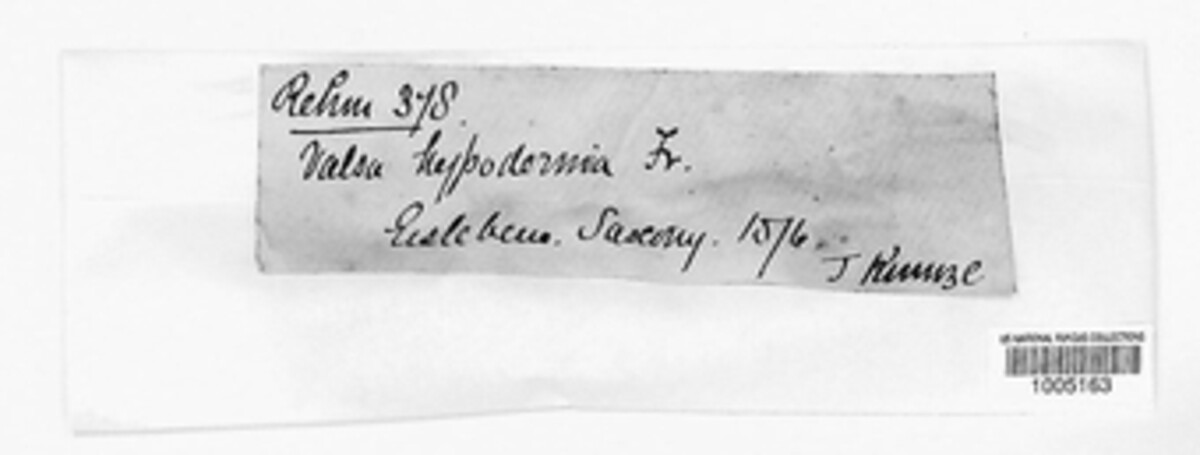 Rehm 378.
Valsa hypodermia Fr.
Eisleben. Saxony. 1876.
J Kunze
US NATIONAL FUNGUS COLLECTIONS
1005163